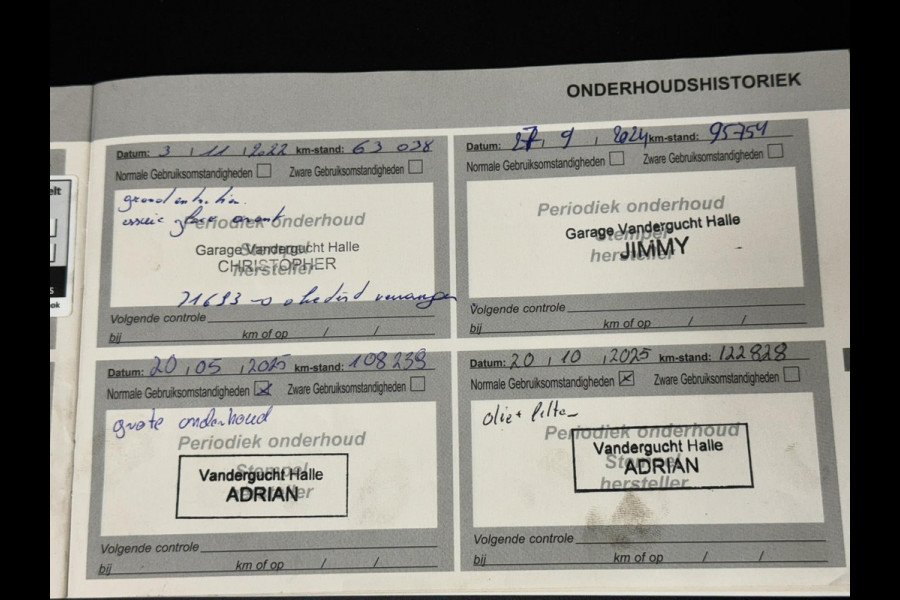 ONDERHOUDSHISTORIEK
Datum: 3 / 11 / 2022 km-stand: 63 038
Normale Gebruiksomstandigheden Zware Gebruiksomstandigheden
Periodiek onderhoud
Stempel
hersteller
Garage Vandergucht Halle
CHRISTOPHER
71693
Volgende controle
bij km of op / /
Datum: 27 / 9 / 2024 km-stand: 95754
Normale Gebruiksomstandigheden Zware Gebruiksomstandigheden
Periodiek onderhoud
Stempel
hersteller
Garage Vandergucht Halle
JIMMY
Volgende controle
bij km of op / /
Datum: 20 / 05 / 2025 km-stand: 108239
Normale Gebruiksomstandigheden Zware Gebruiksomstandigheden
grote onderhoud
Periodiek onderhoud
Stempel
hersteller
Vandergucht Halle
ADRIAN
Volgende controle
bij km of op / /
Datum: 20 / 10 / 2025 km-stand: 122828
Normale Gebruiksomstandigheden Zware Gebruiksomstandigheden
olie + filter
Periodiek onderhoud
Stempel
hersteller
Vandergucht Halle
ADRIAN
Volgende controle
bij km of op / /